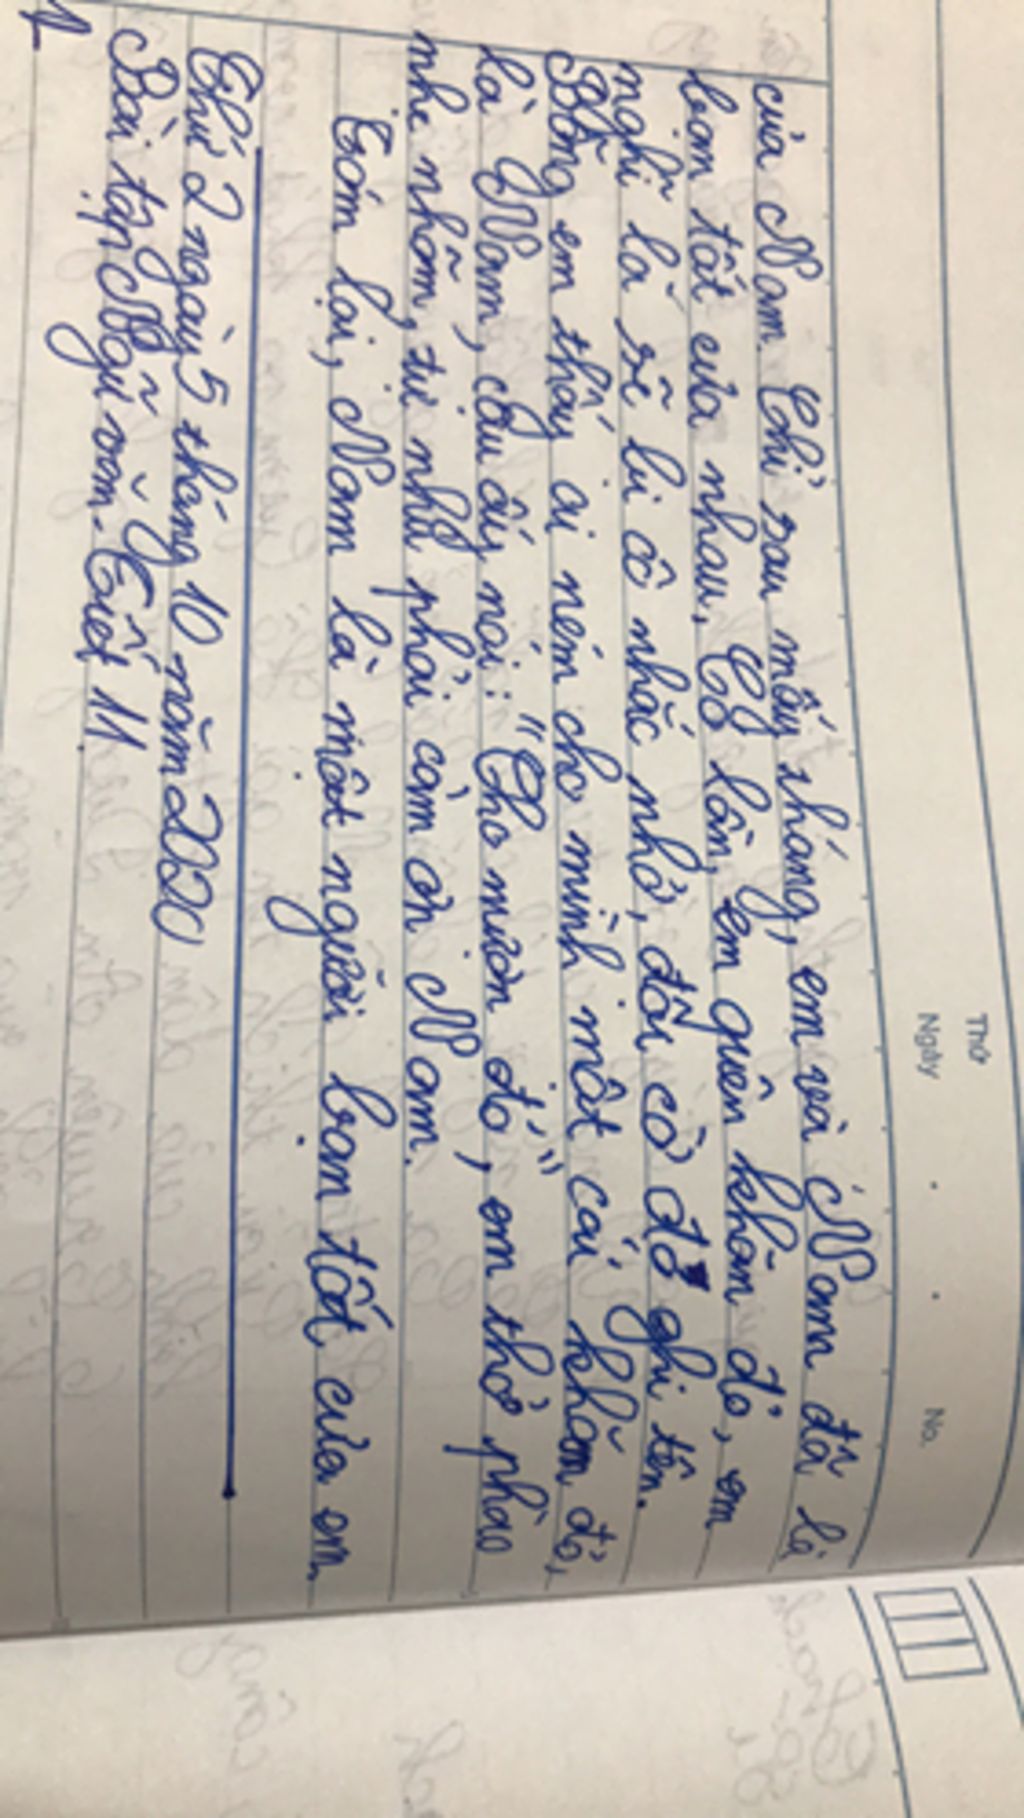 Thứ
Ngày . . No.
của Nam. Chỉ sau mấy tháng, em và Nam đã là
bạn tốt của nhau. Có lần, em quên khăn đỏ, em
nghĩ là sẽ bị cô nhắc nhở, đội cờ đỏ ghi tên.
Bỗng em thấy ai ném cho mình một cái khăn đỏ,
là Nam, cậu ấy nói: "Cho mượn đó", em thở phào
nhẹ nhõm, tự nhủ phải cảm ơn Nam.
Tóm lại, Nam là một người bạn tốt của em.
Thứ 2 ngày 5 tháng 10 năm 2020
Bài tập Ngữ văn - Tiết 11
1